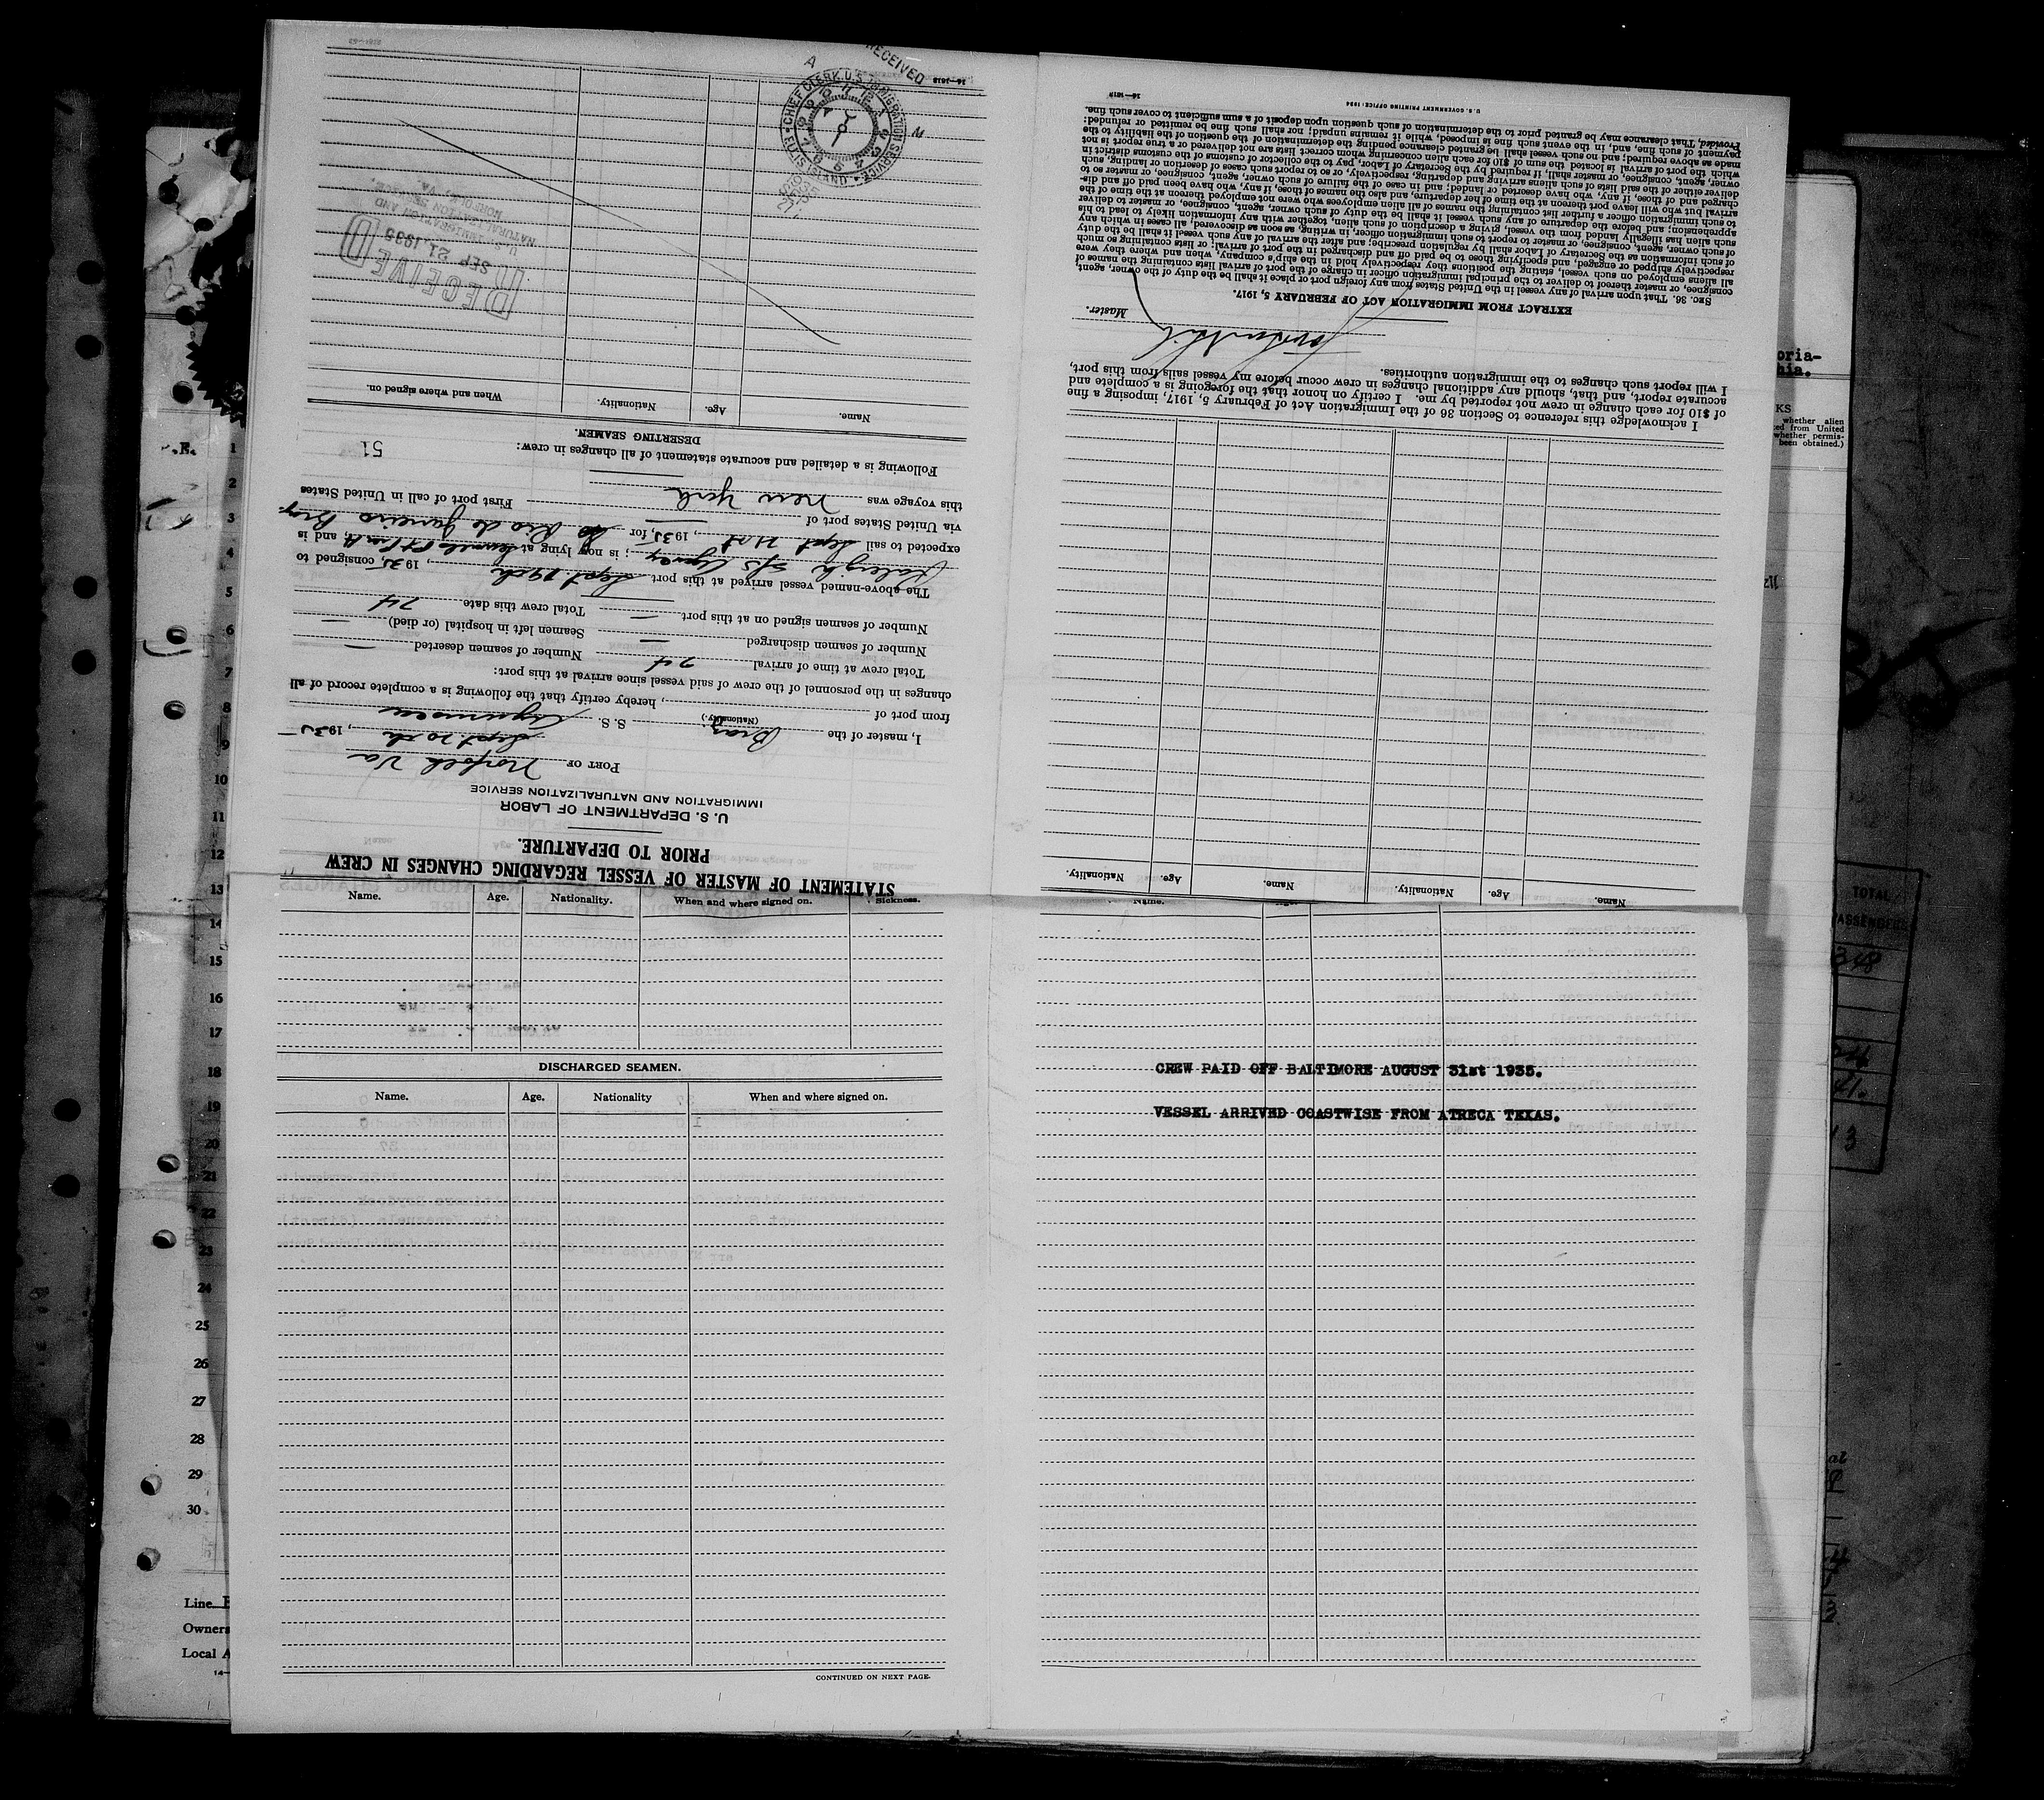 STATEMENT OF MASTER OF VESSEL REGARDING CHANGES IN CREW
PRIOR TO DEPARTURE.
U. S. DEPARTMENT OF LABOR
IMMIGRATION AND NATURALIZATION SERVICE
PORT OF Norfolk Va
Sept 20th, 1935
I, master of the Braz S. S.
(Nationality.)
from port of , hereby certify that the following is a complete record of all
changes in the personnel of the crew of said vessel since arrival at this port:
Total crew at time of arrival 74 Number of seamen deserted —
Number of seamen discharged — Seamen left in hospital (or died) —
Number of seamen signed on at this port — Total crew this date 74
The above-named vessel arrived at this port Sept. 19th, 1935, consigned to
; is now lying at , and is
expected to sail Sept 21st, 1935, for Rio de Janeiro
via United States port of —
this voyage was New York First port of call in United States
Following is a detailed and accurate statement of all changes in crew: 51
DESERTING SEAMEN.
Name. Age. Nationality. When and where signed on.
RECEIVED
SEP 21 1935
U. S. IMMIGRATION AND
NATURALIZATION SERVICE
NORFOLK, VA.
RECEIVED
CHIEF CLERK, U.S. IMMIGRATION SERVICE
ELLIS ISLAND
16—1618
Name. Age. Nationality. Name. Age. Nationality.
I acknowledge this reference to Section 36 of the Immigration Act of February 5, 1917, imposing a fine
of $10 for each change in crew not reported by me. I certify on honor that the foregoing is a complete and
accurate report, and that, should any additional changes in crew occur before my vessel sails from this port,
I will report such changes to the immigration authorities.
Master.
EXTRACT FROM IMMIGRATION ACT OF FEBRUARY 5, 1917.
SEC. 36. That upon arrival of any vessel in the United States from any foreign port or place it shall be the duty of the owner, agent,
consignee, or master thereof to deliver to the principal immigration officer in charge of the port of arrival lists containing the names of
all aliens employed on such vessel, stating the positions they respectively hold in the ship's company, when and where they were
respectively shipped or engaged, and specifying those to be paid off and discharged in the port of arrival; or lists containing so much
of such information as the Secretary of Labor shall by regulation prescribe; and after the arrival of any such vessel it shall be the duty
of such owner, agent, consignee, or master to report to such immigration officer, in writing, as soon as discovered, all cases in which any
such alien has illegally landed from the vessel, giving a description of such alien, together with any information likely to lead to his
apprehension; and before the departure of any such vessel it shall be the duty of such owner, agent, consignee, or master to deliver
to such immigration officer a further list containing the names of all alien employees who were not employed thereon at the time of the
arrival but who will leave port thereon at the time of her departure, and also the names of those, if any, who have been paid off and dis-
charged and of those, if any, who have deserted or landed; and in case of the failure of such owner, agent, consignee, or master so to
deliver either of the said lists of such aliens arriving and departing, respectively, or so to report such cases of desertion or landing, such
owner, agent, consignee, or master, shall, if required by the Secretary of Labor, pay to the collector of customs of the customs district in
which the port of arrival is located the sum of $10 for each alien concerning whom correct lists are not delivered or a true report is not
made as above required; and no such vessel shall be granted clearance pending the determination of the question of the liability to the
payment of such fine, and, in the event such fine is imposed, while it remains unpaid; nor shall such fine be remitted or refunded:
Provided, That clearance may be granted prior to the determination of such question upon deposit of a sum sufficient to cover such fine.
U. S. GOVERNMENT PRINTING OFFICE: 1934
16—1618
Name. Age. Nationality. When and where signed on. Sickness.
DISCHARGED SEAMEN.
Name. Age. Nationality When and where signed on.
CONTINUED ON NEXT PAGE.
CREW PAID OFF BALTIMORE AUGUST 31st 1935.
VESSEL ARRIVED COASTWISE FROM ATRECA TEXAS.
1
2
3
4
5
6
7
8
9
10
11
12
13
14
15
16
17
18
19
20
21
22
23
24
25
26
27
28
29
30
Line
Owners
Local A
oria-
hia.
KS
whether alien
ed from United
whether permis-
been obtained.)
TOTAL
PASSENGERS